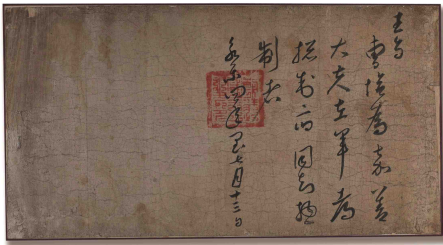 王旨
曹恰爲嘉善
大夫左軍都
摠制府同知摠
制者
永樂四年閏七月十三日